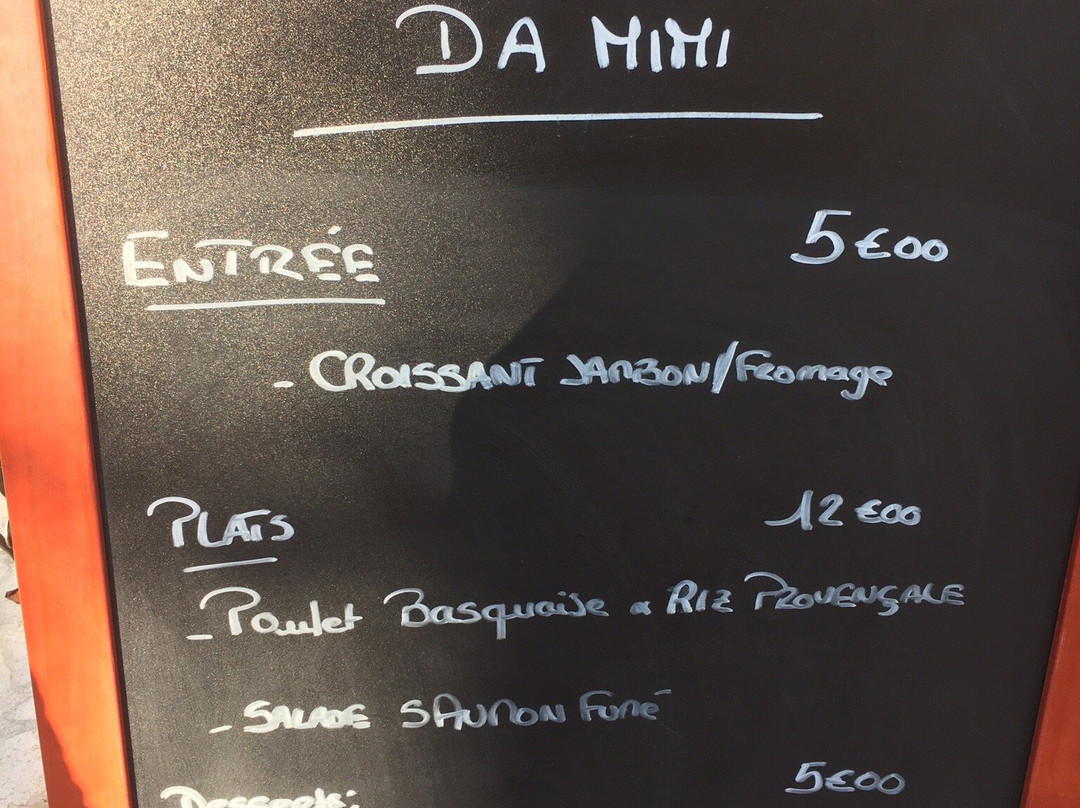 DA MIMI
ENTRÉE 5€00
- CROISSANT JAMBON/Fromage
PLATS 12€00
- Poulet Basquaise & RIZ PROVENÇALE
- SALADE SAUMON Fumé
Desserts: 5€00